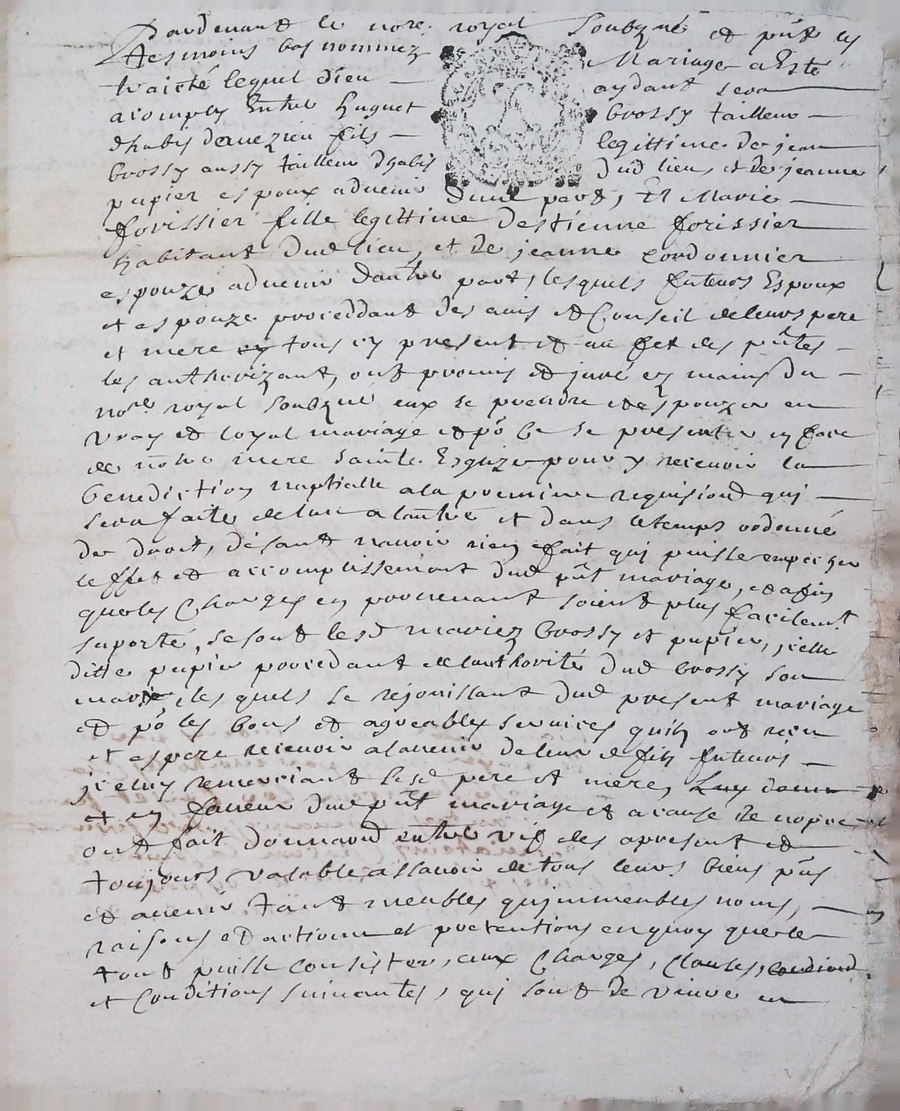 Pardevant le nore. royal Soubzné et pnts les
tesmoins bas nommez Mariage a Esté
traicté lequel dieu aydant sera
acomply Entre huguet brossy tailleur
dhabis fils legittime de jean
brossy aussy tailleur dhabis dud lieu, et de jeanne
pupier espoux advenir dune part, Et Marie
forissier fille legittime destienne forissier
habitant dud lieu, et de jeanne cordonnier
espouze advenir dautre part, lesquels futurs Espoux
et espouze proceddant des avis et Conseil de leurs pere
et mere tous icy present et au fet des pntes
les authorizant, ont promis et juré es mains du
nore royal soubzné eux se prendre et Espouzer en
vray et loyal mariage et po ce se presenter en face
de notre mere sainte Esglize pour y recevoir la
benediction nuptialle a la premiere requisiond qui
sera faite de lun a lautre et dans le temps ordonné
de droit, disant navoir rien fait qui puisse empecher
leffet et accomplissement dud pnt mariage, et afin
que les Charges en provenant soient plus facilemt
suporté, se sont lesd mariez brossy et pupier, jcelle
ditte pupier procedant de lauthorité dud brossy son
mary, les quels se rejouissant dud present mariage
et po les bons et agreables services quils ont receu
et espere recevoir a ladvenir de leur d fils futurs
jceluy remerciant lesd pere et mere, Luy donne
et en faveur dud pnt mariage et a cause de nopce
ont fait donnaond entre vif des apresent et
toujours valable assavoir de tous leurs biens pns
et avenir tant meubles quimmeubles noms,
raisons et actions et pretentions en quoy que le
tout puisse consister, aux Charges, Clauses,
et Conditions suivantes, qui sont de vivre en